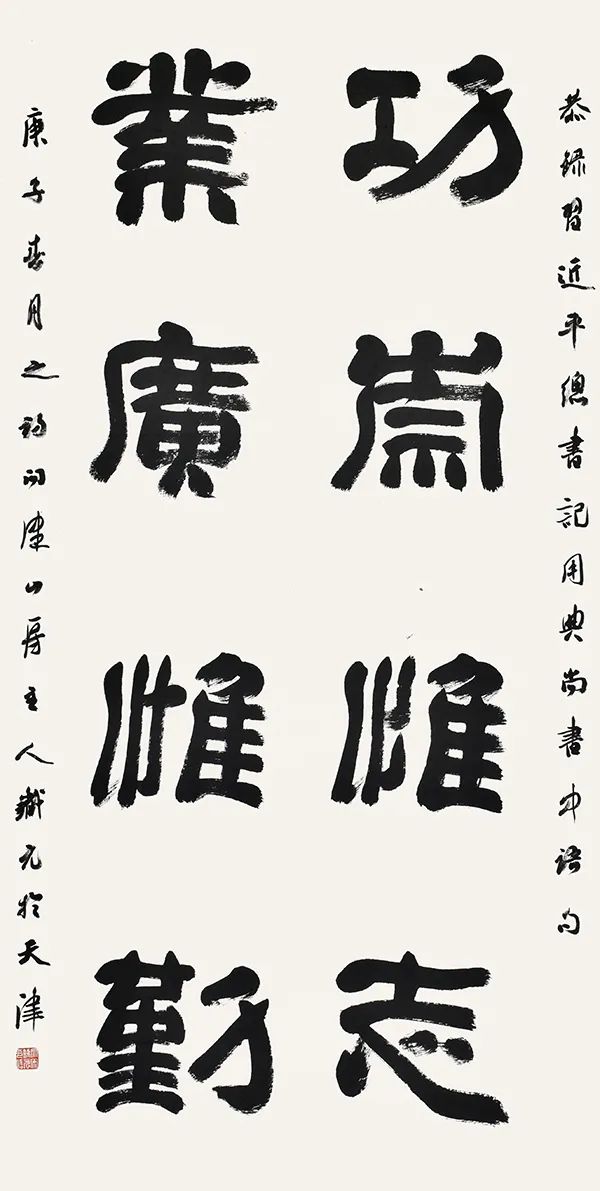 恭録習近平總書記用典尚書中語句
功崇惟志
業廣惟勤
庚子春月之初问津山房主人元於天津